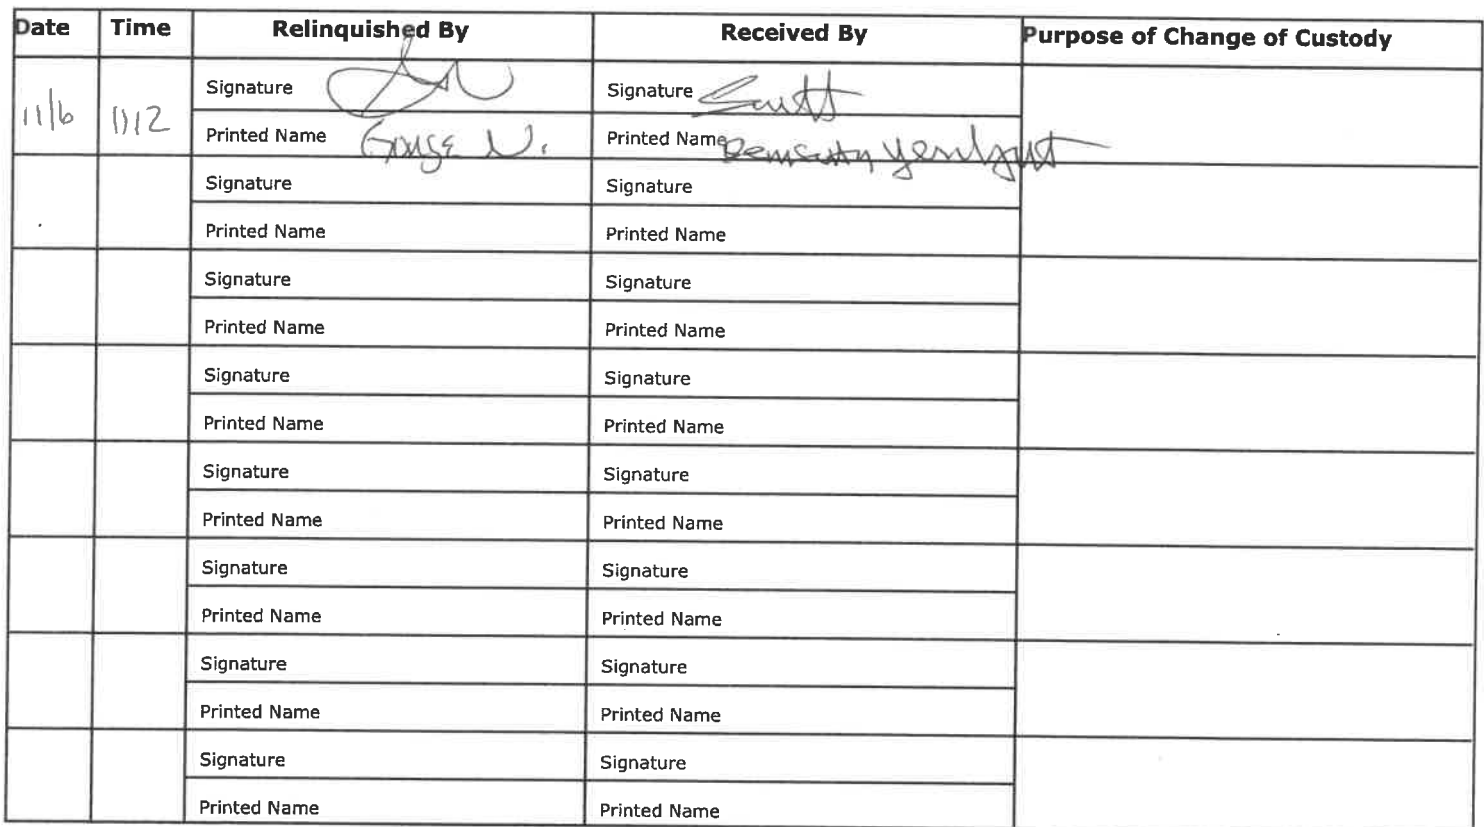 Date Time Relinquished By Received By Purpose of Change of Custody
11/6 1112 Signature Signature
Printed Name George N. Printed Name
Signature Signature
Printed Name Printed Name
Signature Signature
Printed Name Printed Name
Signature Signature
Printed Name Printed Name
Signature Signature
Printed Name Printed Name
Signature Signature
Printed Name Printed Name
Signature Signature
Printed Name Printed Name
Signature Signature
Printed Name Printed Name